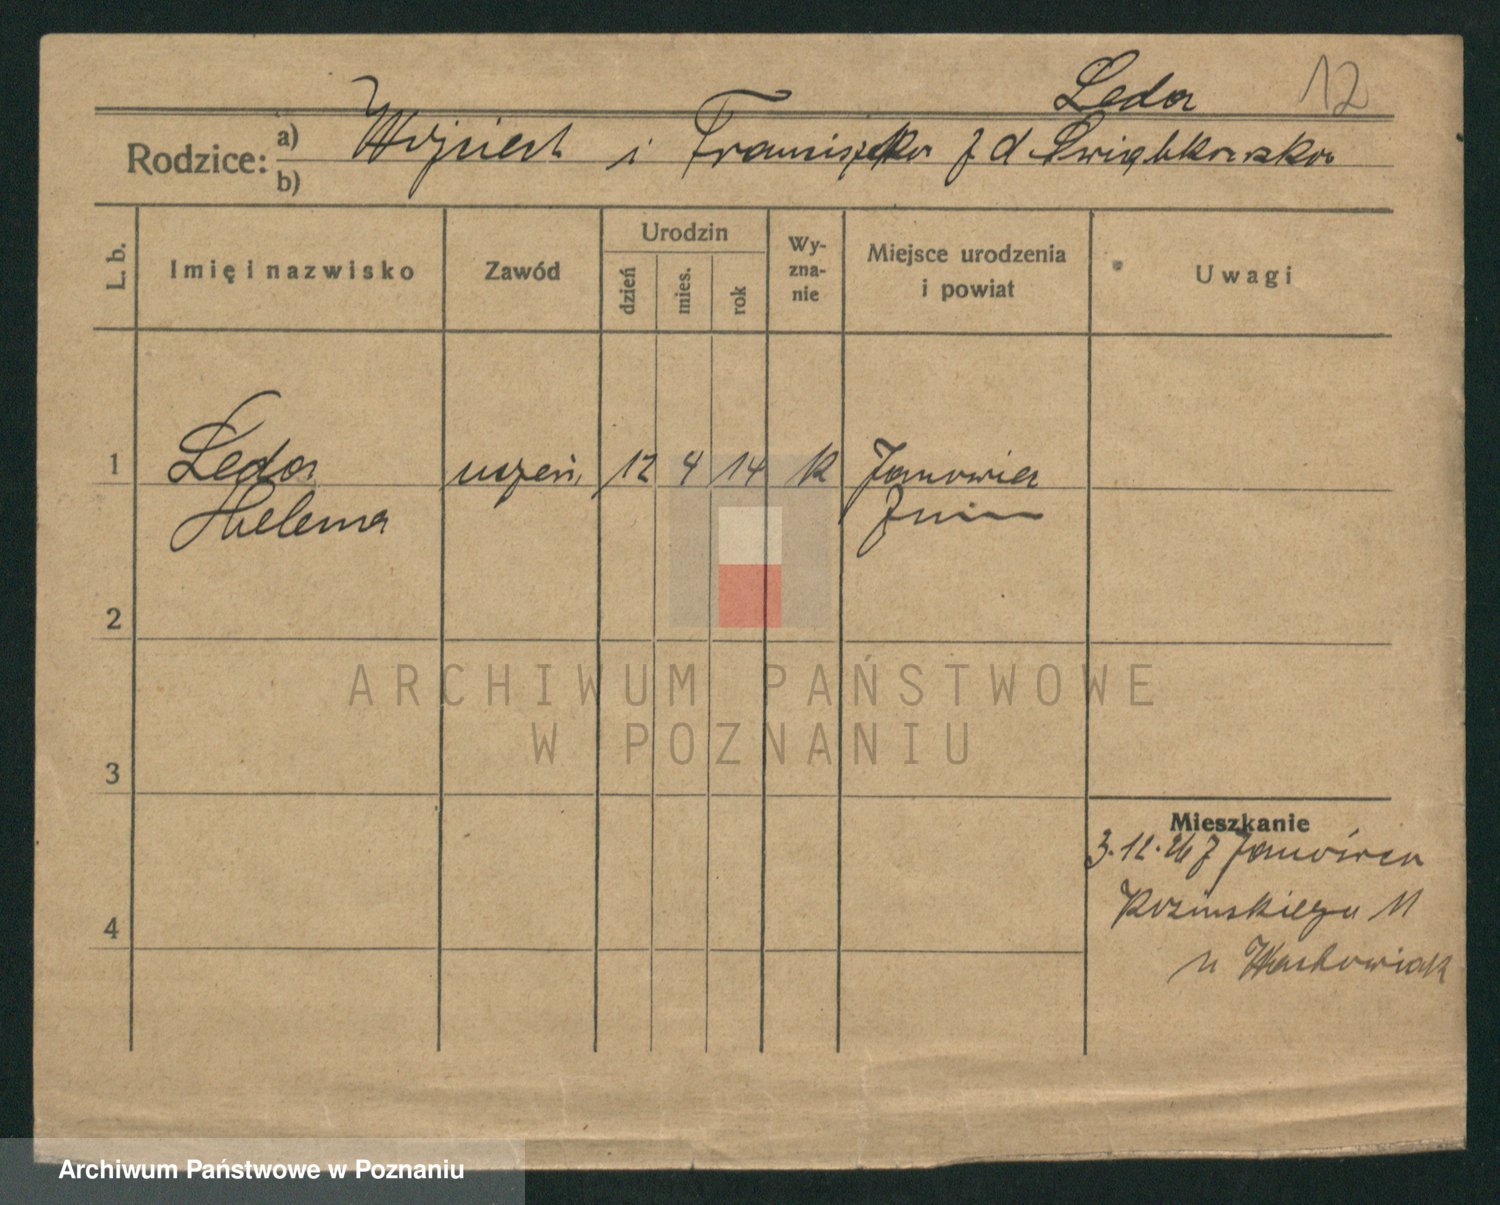 Leda 12
Rodzice: a) Wojciech i Franciszka z d Świątkowska
b)
L. b. Imię i nazwisko Zawód Urodzin dzień mies. rok Wy-
zna-
nie Miejsce urodzenia
i powiat Uwagi
1 Leda uczeń 12 4 14 k Janowiec
Helena Żnin
2
ARCHIWUM PAŃSTWOWE
W POZNANIU
3
Mieszkanie
3.12.26 z Janówca
4 11
u Wachowiak
Archiwum Państwowe w Poznaniu